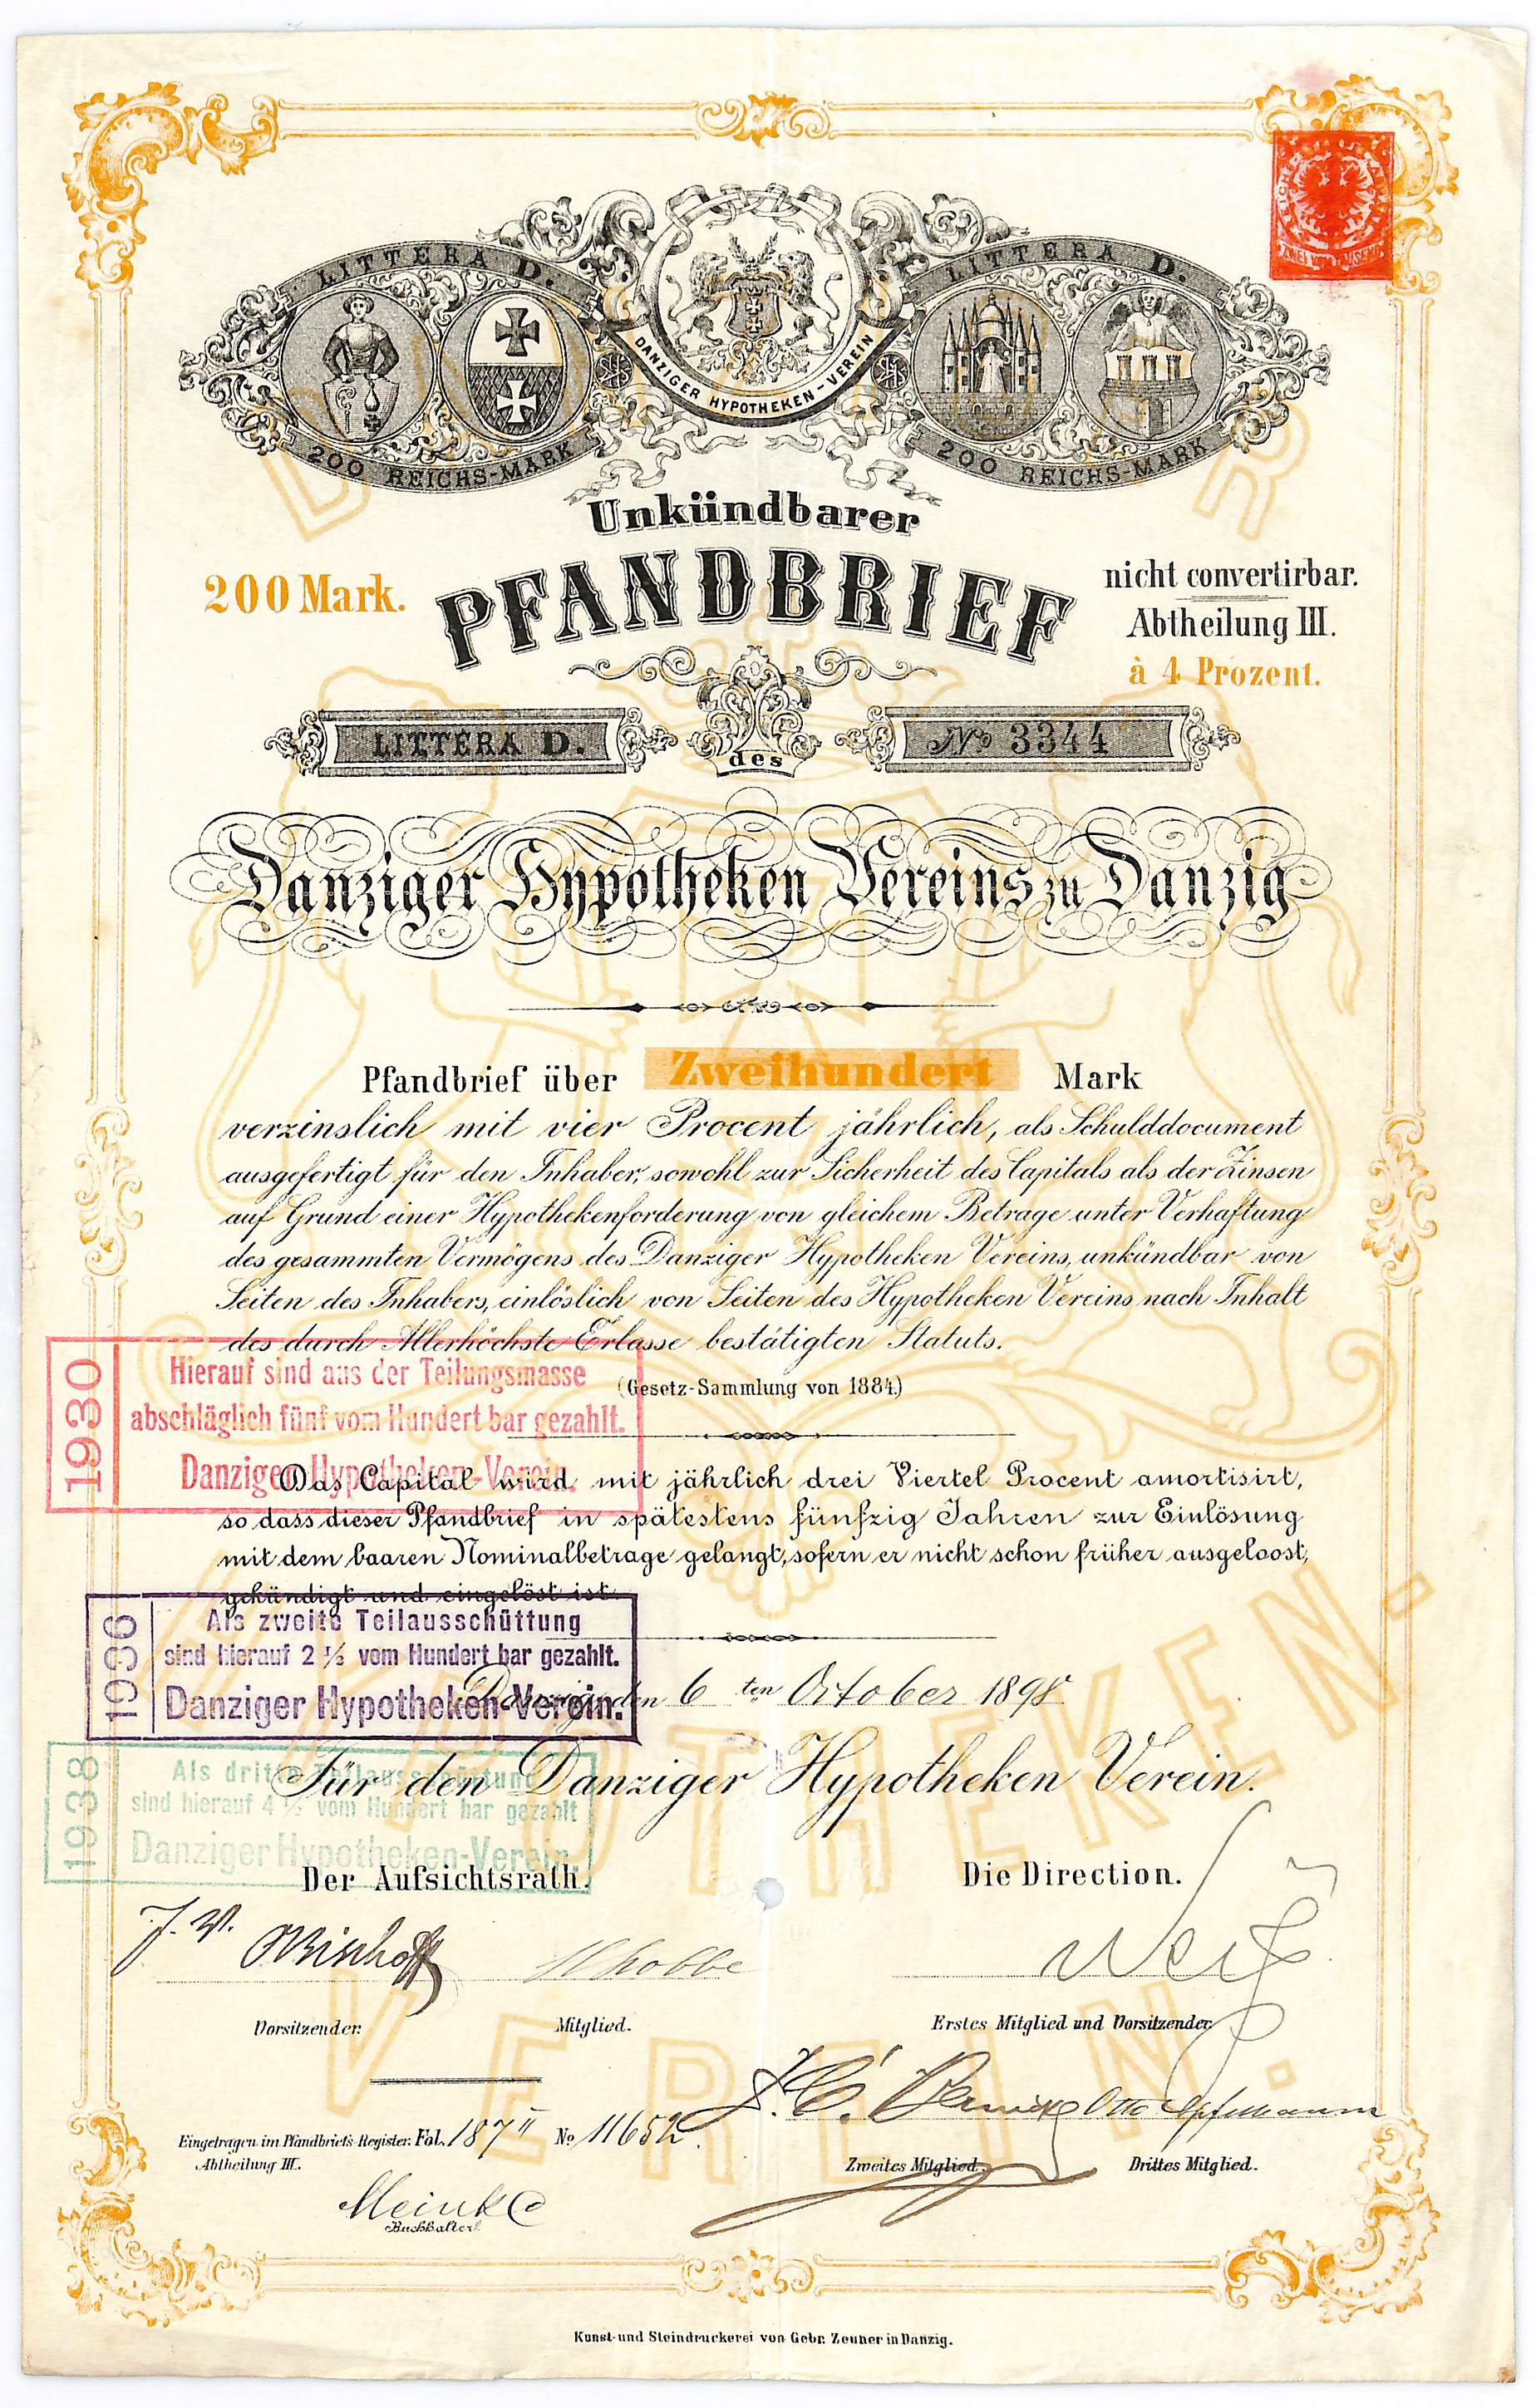 LITTERA D.
LITTERA D.
DANZIGER HYPOTHEKEN-VEREIN
200 REICHS-MARK
200 REICHS-MARK
ZWEI VOM TAUSEND
Unkündbarer
200 Mark.
PFANDBRIEF
nicht convertirbar.
Abtheilung III.
à 4 Prozent.
LITTERA D.
des
No 3344
Danziger Hypotheken Vereins zu Danzig
Pfandbrief über Zweihundert Mark
verzinslich mit vier Procent jährlich, als Schulddocument
ausgefertigt für den Inhaber, sowohl zur Sicherheit des Capitals als der Zinsen
auf Grund einer Hypothekenforderung von gleichem Betrage unter Verhaftung
des gesammten Vermögens des Danziger Hypotheken Vereins, unkündbar von
Seiten des Inhabers, einlöslich von Seiten des Hypotheken Vereins nach Inhalt
des durch Allerhöchste Erlasse bestätigten Statuts.
(Gesetz-Sammlung von 1884.)
1930
Hierauf sind aus der Teilungsmasse
abschläglich fünf vom Hundert bar gezahlt.
Danziger Hypotheken-Verein.
Das Capital wird mit jährlich drei Viertel Procent amortisirt,
so dass dieser Pfandbrief in spätestens fünfzig Jahren zur Einlösung
mit dem baaren Nominalbetrage gelangt, sofern er nicht schon früher ausgeloost,
gekündigt und eingelöst ist.
1936
Als zweite Teilausschüttung
sind hierauf 2 ½ vom Hundert bar gezahlt.
Danziger Hypotheken-Verein.
Danzig, den 6 ten October 1898.
Für den Danziger Hypotheken Verein.
1938
Als dritte Teilausschüttung
sind hierauf 4 ½ vom Hundert bar gezahlt
Danziger Hypotheken-Verein.
Der Aufsichtsrath.
Die Direction.
Vorsitzender.
Mitglied.
Erstes Mitglied und Vorsitzender
Eingetragen im Pfandbriefs-Register: Fol. 187 II No 11652
Abtheilung III.
Zweites Mitglied.
Drittes Mitglied.
Meinke
Buchhalter.
Kunst-und Steindruckerei von Gebr. Zeuner in Danzig.
DANZIGER
HYPOTHEKEN-
VEREIN.